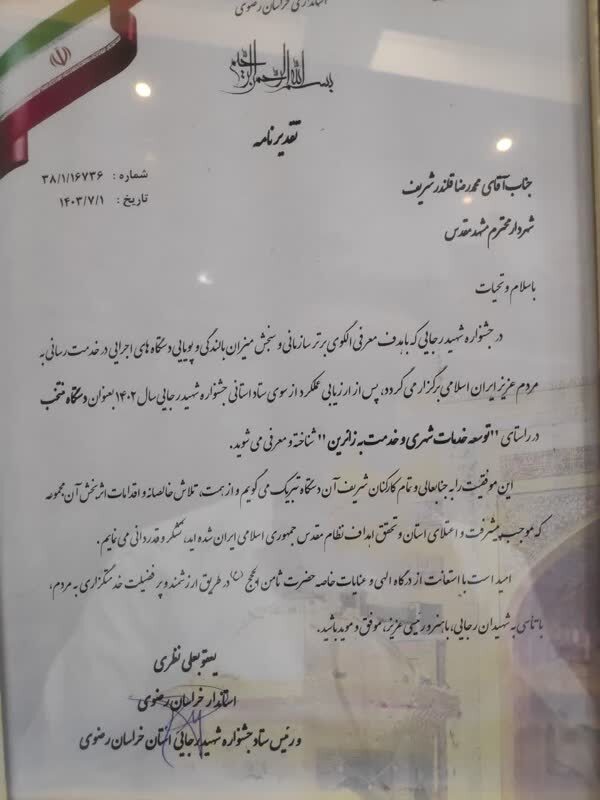 استانداری خراسان رضوی
بسم الله الرحمن الرحیم
تقدیرنامه
شماره : ۳۸/۱/۱۶۷۳۶
تاریخ : ۱۴۰۳/۷/۱
جناب آقای محمدرضا قلندر شریف
شهردار محترم مشهد مقدس
باسلام و تحیات
در جشنواره شهید رجایی که با هدف معرفی الگوی برتر سازمانی و سنجش میزان بالندگی و پویایی دستگاه های اجرایی در خدمت رسانی به
مردم عزیز ایران اسلامی برگزار می گردد، پس از ارزیابی عملکرد از سوی ستاد استانی جشنواره شهید رجایی سال ۱۴۰۲ بعنوان دستگاه منتخب
در راستای "توسعه خدمات شهری و خدمت به زائرین" شناخته و معرفی می شوید.
این موفقیت را به جنابعالی و تمام کارکنان شریف آن دستگاه تبریک می گویم و از همت، تلاش خالصانه و اقدامات اثربخش آن مجموعه
که موجب پیشرفت و اعتلای استان و تحقق اهداف نظام مقدس جمهوری اسلامی ایران شده اید، تشکر و قدردانی می نمایم.
امید است با استعانت از درگاه الهی و عنایات خاصه حضرت ثامن الحجج (ع) در طریق ارزشمند و پر فضیلت خدمتگزاری به مردم،
با تأسی به شهیدان رجایی، باهنر و رئیسی عزیز، موفق و موید باشید.
یعقوبعلی نظری
استاندار خراسان رضوی
و رئیس ستاد جشنواره شهید رجایی استان خراسان رضوی